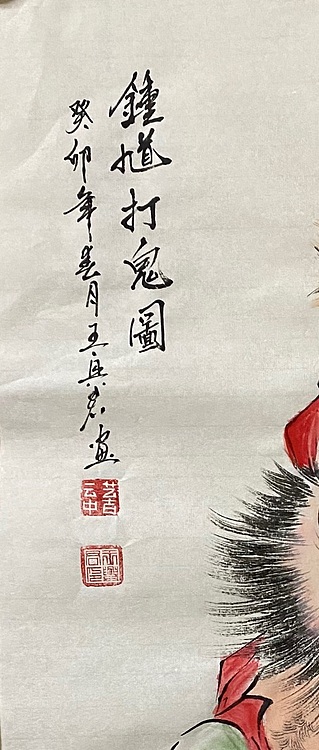 鍾馗打鬼圖
癸卯年春月王興君畫